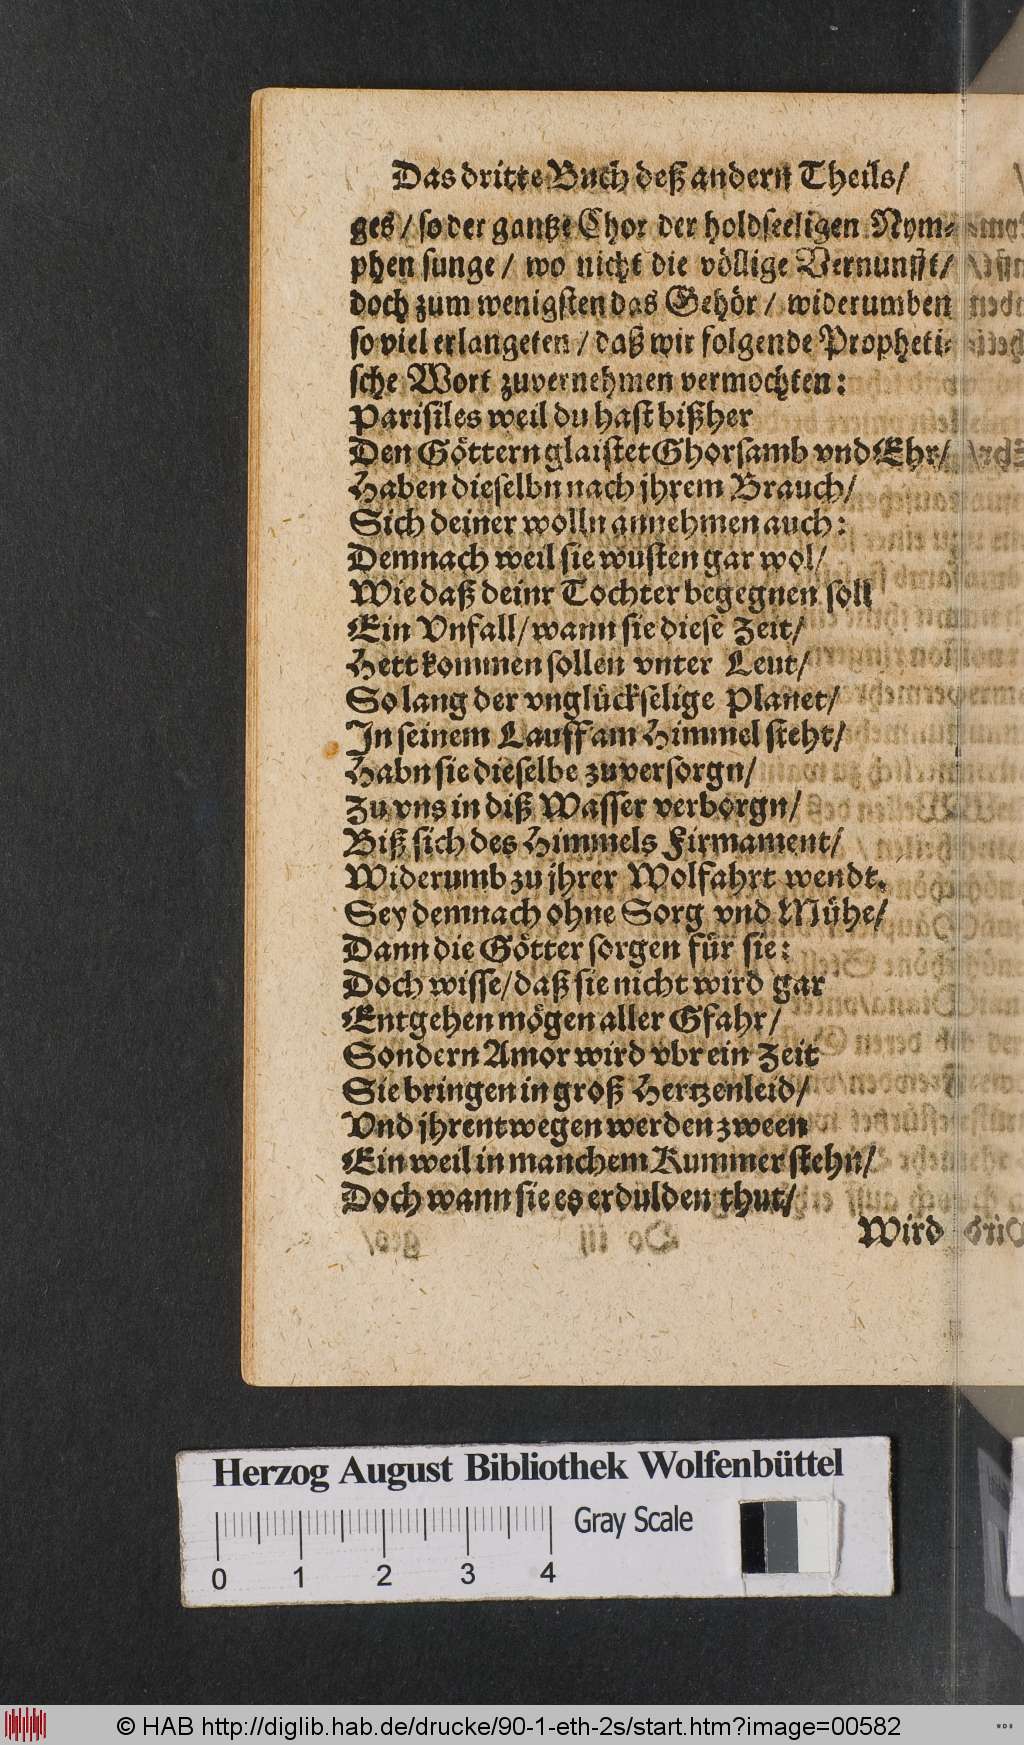 Das dritte Buch deß andern Theils/
ges / so der gantze Chor der holdseeligen Nym-
phen sunge / wo nicht die völlige Vernunfft/
doch zum wenigsten das Gehör / widerumben
so viel erlangeten / daß wir folgende Propheti-
sche Wort zuvernehmen vermochten:
Parisiles weil du hast bißher
Den Göttern glaistet Ghorsamb vnd Ehr/
Haben dieselbn nach jhrem Brauch/
Sich deiner wolln annehmen auch:
Demnach weil sie wusten gar wol/
Wie daß deinr Tochter begegnen soll
Ein Vnfall/ wann sie diese Zeit/
Hett kommen sollen vnter Leut/
So lang der vnglückselige Planet/
In seinem Lauff am Himmel steht/
Habn sie dieselbe zuversorgn/
Zu vns in diß Wasser verborgn/
Biß sich des Himmels Firmament/
Widerumb zu jhrer Wolfahrt wendt.
Sey demnach ohne Sorg vnd Mühe/
Dann die Götter sorgen für sie:
Doch wisse/ daß sie nicht wird gar
Entgehen mögen aller Gfahr/
Sondern Amor wird vbr ein Zeit
Sie bringen in groß Hertzenleid/
Vnd jhrentwegen werden zween
Ein weil in manchem Kummer stehn/
Doch wann sie es erdulden thut/
Wird
Herzog August Bibliothek Wolfenbüttel
Gray Scale
0 1 2 3 4
© HAB http://diglib.hab.de/drucke/90-1-eth-2s/start.htm?image=00582